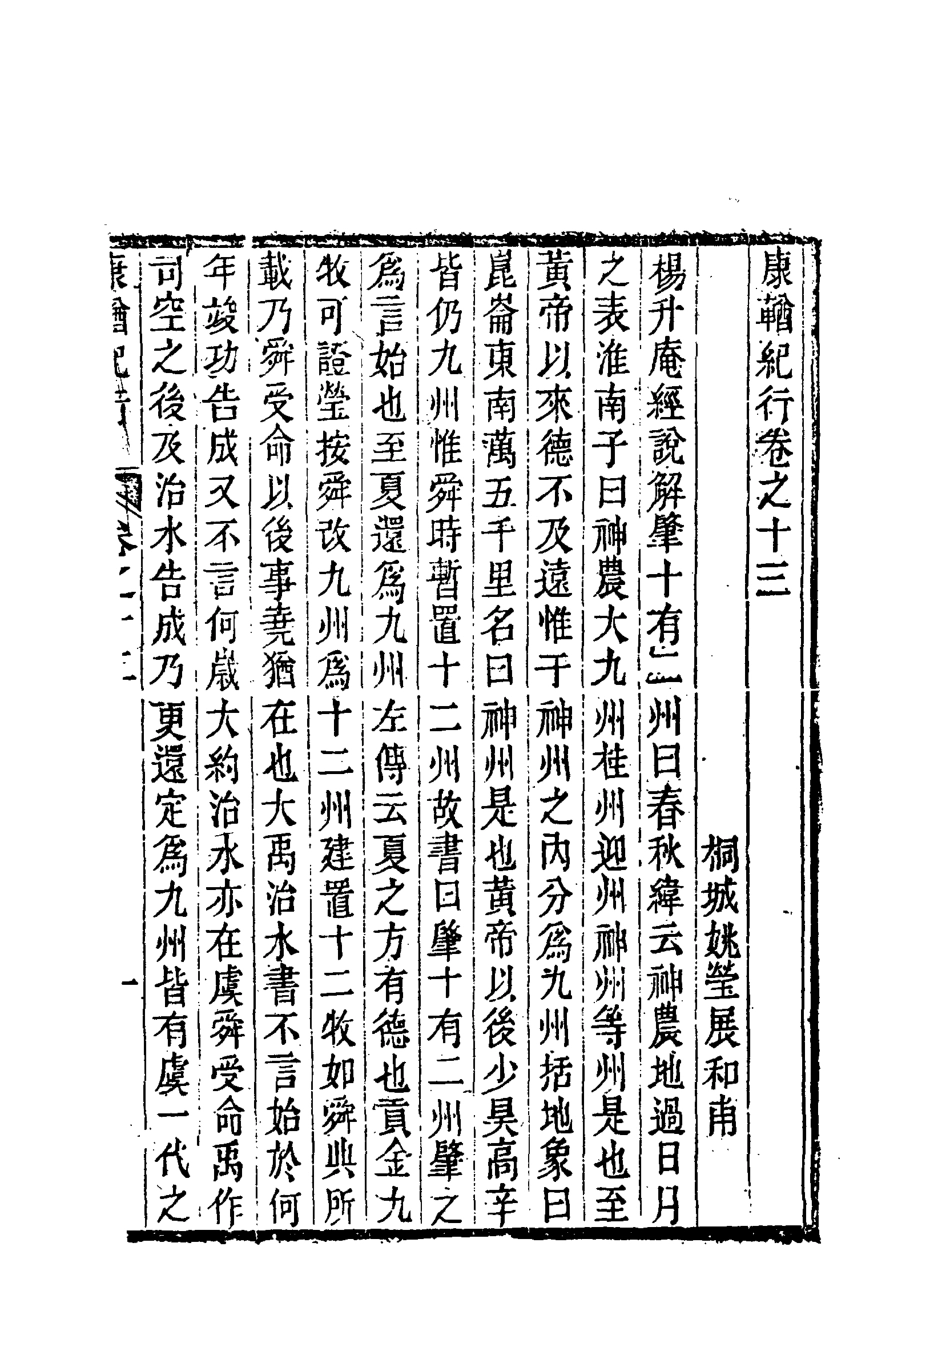 康輶紀行卷之十三
桐城姚瑩展和甫
楊升庵經說解肇十有二州曰春秋緯云神農地過日月
之表淮南子曰神農大九州桂州迎州神州等州是也至
黃帝以來德不及遠惟于神州之內分爲九州括地象曰
崑崙東南萬五千里名曰神州是也黃帝以後少昊高辛
皆仍九州惟舜時暫置十二州故書曰肇十有二州肇之
爲言始也至夏還爲九州左傳云夏之方有德也貢金九
牧可證瑩按舜改九州爲十二州建置十二牧如舜典所
載乃舜受命以後事堯猶在也大禹治水書不言始於何
年竣功告成又不言何歲大約治水亦在虞舜受命禹作
司空之後及治水告成乃更還定爲九州皆有虞一代之
康輶紀行 卷之十三 一